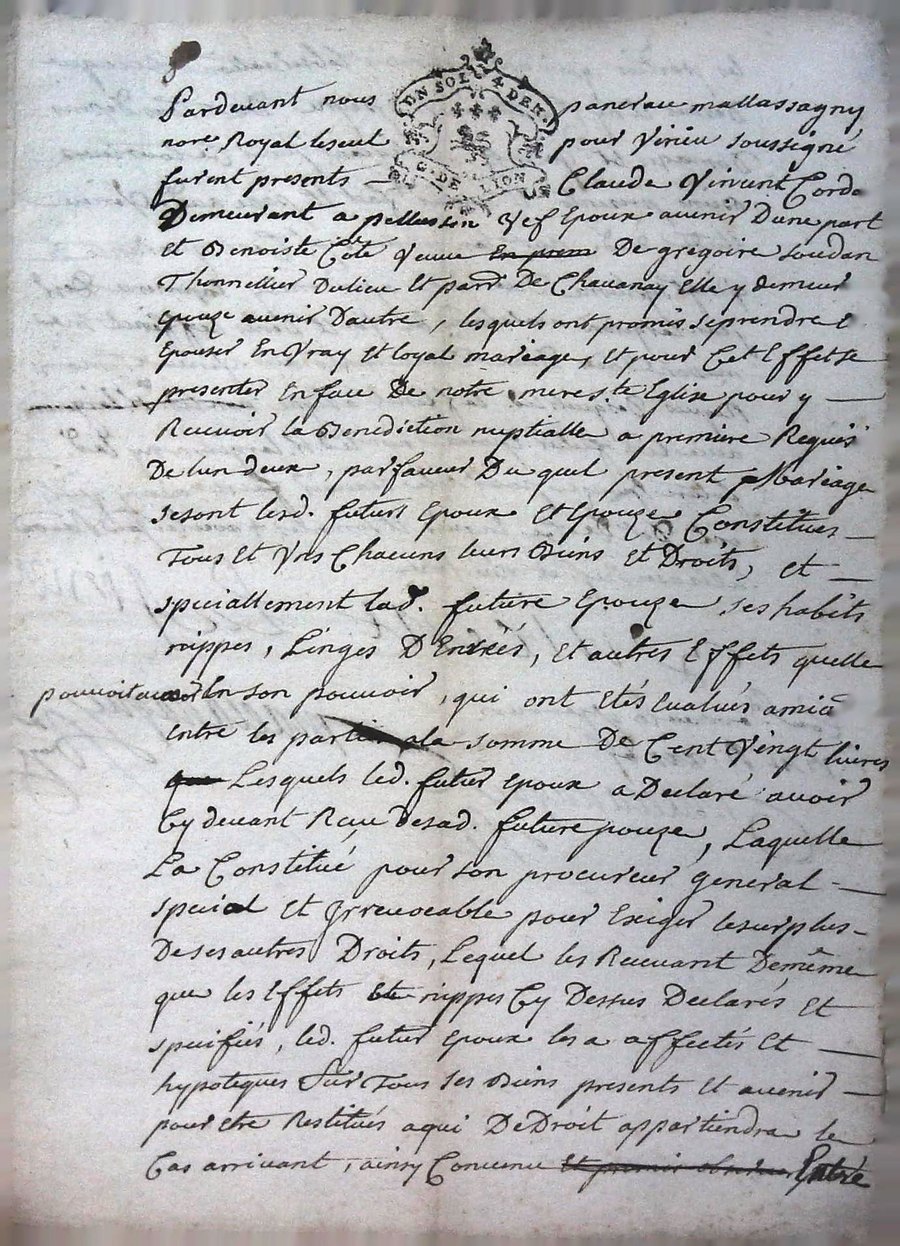 Pardevant nous pancrau mallassagny
UN SOL 4 DEN.
G. DE LYON
nore Royal leseul pour Virieu soussigné
furent presents Claude Vinvent Corda
Demeurant a pellussin Vef Epoux avenir Dune part
Et Benoiste Côte Veuve En prem De gregoire Soudan
Thonnellier Dulieu Et parr De Chavanay Elle y demeur
epouze avenir Dautre, lesquels ont promis seprendre E
Epouser En Vray Et loyal mariage, Et pour Cet Effet se
presenter En face De notre mere s.te Eglise pour y
Recevoir la Benediction nuptialle a premiere Requis
De lun deux, par faveur Du quel present Mariage
se sont lesd. futurs Epoux Et Epouze Constitués
Tous Et Vns Chacuns leurs Biens Et Droits, Et
speciallement lad. future Epouze ses habits
nippes, Linges Denrées, Et autres Effets quelle
pouvoit avoir En son pouvoir, qui ont Etés Evalués amia
Entre les parties ala somme De Cent Vingt livres
que Lesquels led. futur Epoux a Declaré avoir
Cy devant Reçu desad. future pouze, Laquelle
La Constitué pour son procureur general
special Et Irrevocable pour Exiger lesurplus
De ses autres Droits, Lequel les Recevant Demême
que les Effets Et nippes Cy Dessus Declarés Et
spécifiés, led. futur Epoux les a affectés Et
hypoteques Sur Tous ses Biens presents Et avenir
pour Etre Restitués aqui De Droit appartiendra le
Cas arrivant, ainsy Convenu Et promis Entre